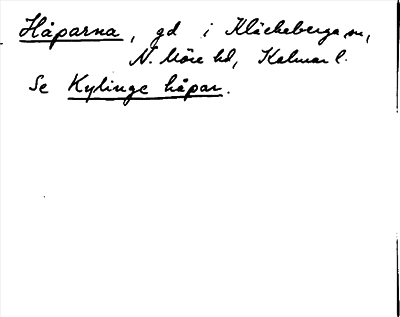 Håparna, gd i Kläckeberga sn,
N. Möre hd, Kalmar l.
Se Kylinge håpar.